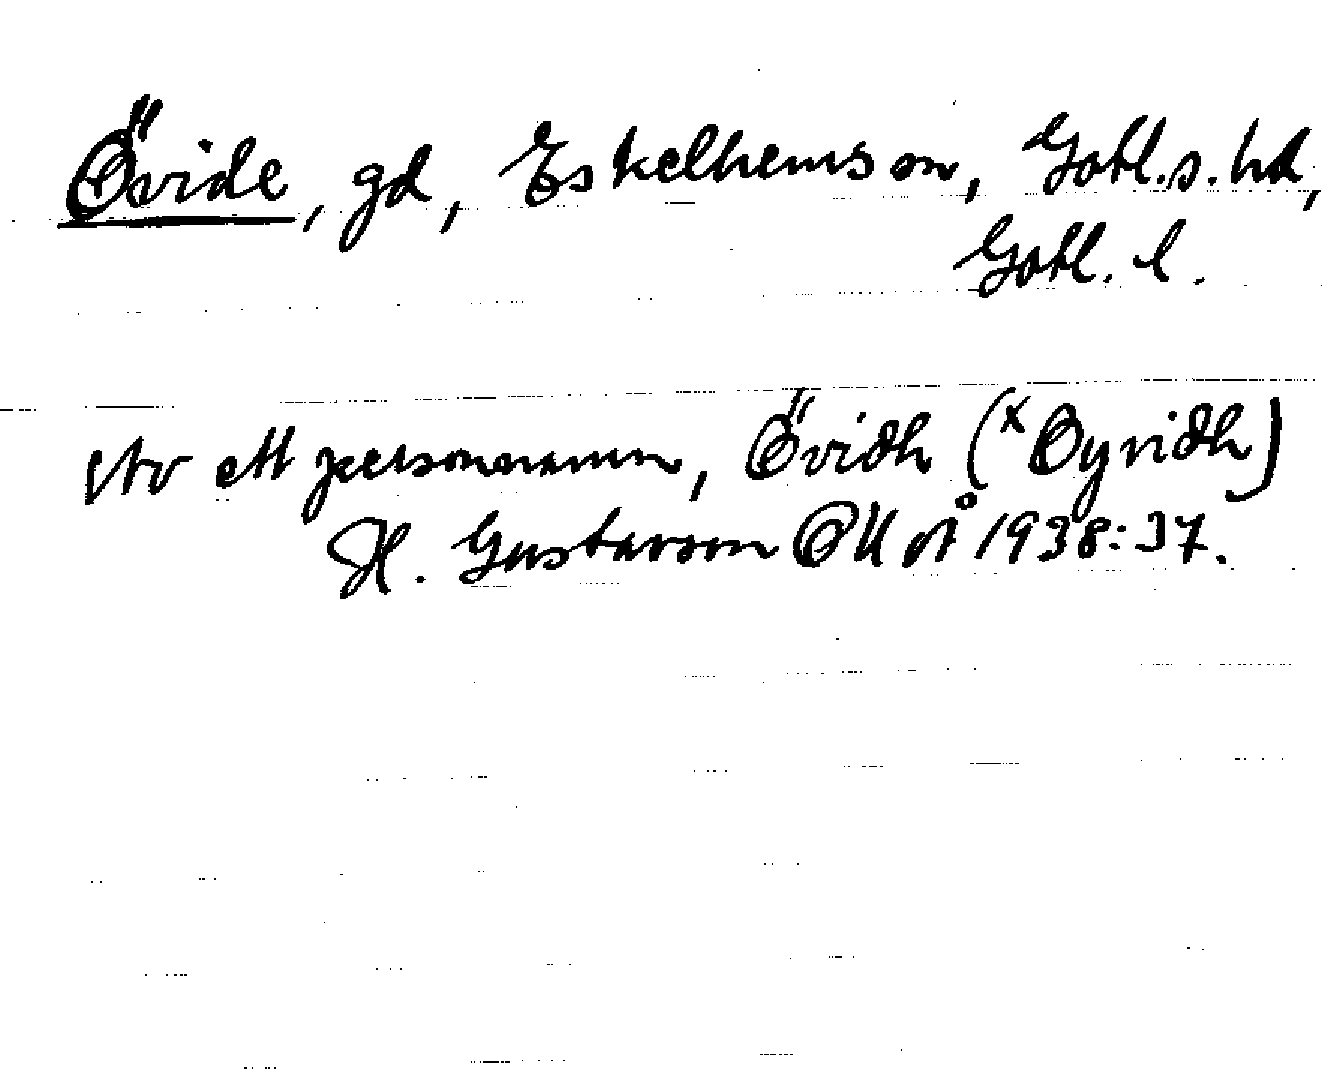 Övide, gd, Eskelhems sn, Gotl. s. hd,
Gotl. l.
av ett personnamn, Övidh (×Øyvidh)
H. Gustavson 1938:37.